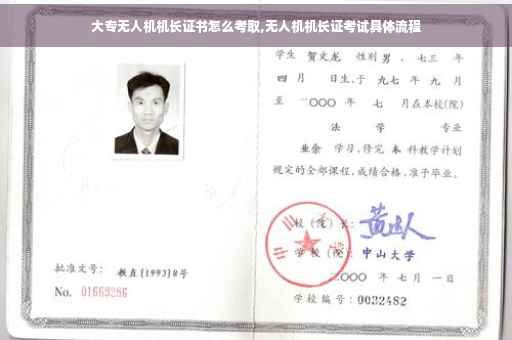 大专无人机机长证书怎么考取,无人机机长证考试具体流程
学生 贺文龙 性别 男 、七三 年
四 月 日生,于 九七 年 九 月
至 二〇〇〇 年 七 月在本校(院)
法 学 专业
业余 学习,修完 本 科教学计划
规定的全部课程,成绩合格,准予毕业。
校(院)长:
学校(院): 中山大学
二〇〇〇 年 七 月 一 日
学校编号: 0032482
批准文号: 教直[1993]8号
No. 01669286